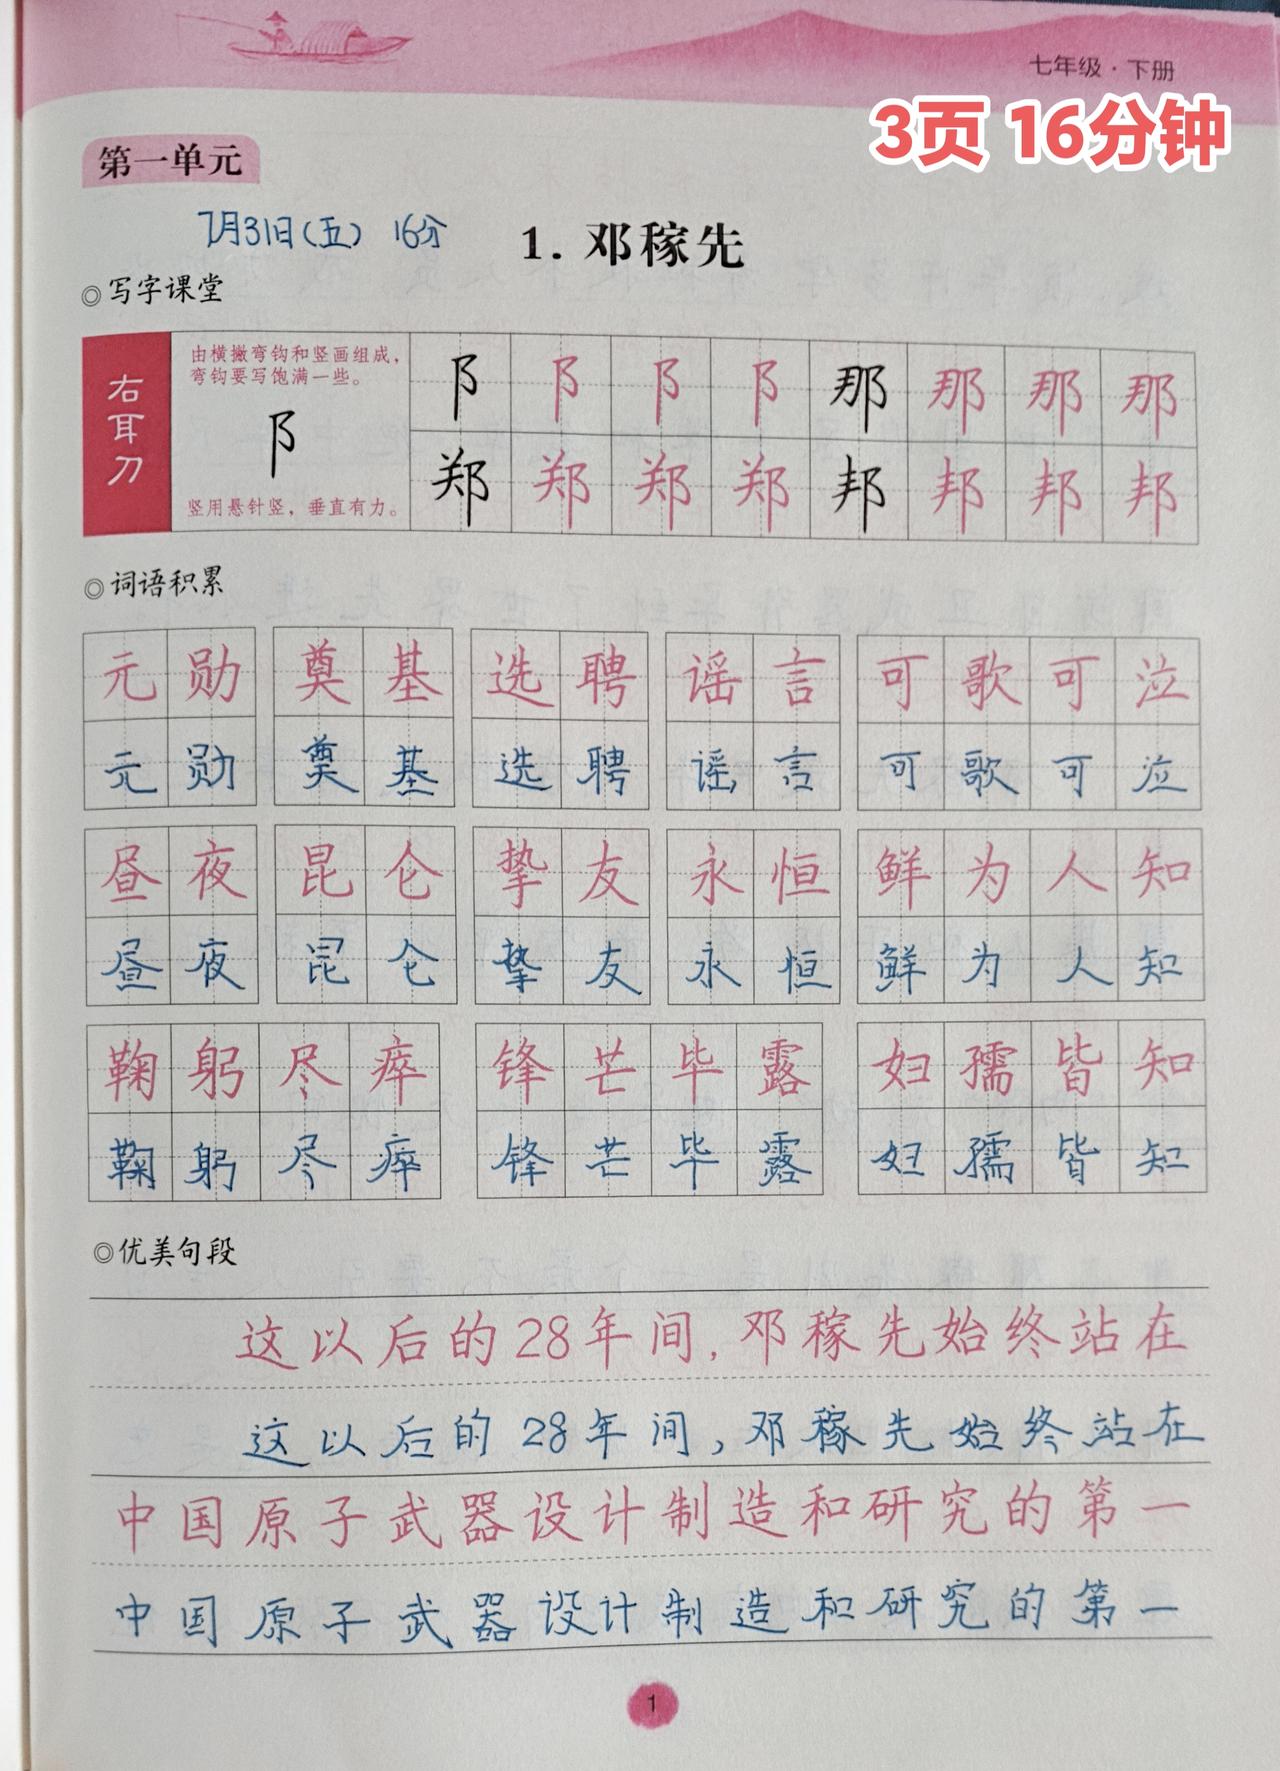 七年级·下册
3页 16分钟
第一单元
7月31日(五) 16分
1. 邓稼先
◎写字课堂
右耳刀
由横撇弯钩和竖画组成,
弯钩要写饱满一些。
阝
竖用悬针竖，垂直有力。
阝 阝 阝 阝 那 那 那 那
郑 郑 郑 郑 邦 邦 邦 邦
◎词语积累
元勋 奠基 选聘 谣言 可歌可泣
元勋 奠基 选聘 谣言 可歌可泣
昼夜 昆仑 挚友 永恒 鲜为人知
昼夜 昆仑 挚友 永恒 鲜为人知
鞠躬尽瘁 锋芒毕露 妇孺皆知
鞠躬尽瘁 锋芒毕露 妇孺皆知
◎优美句段
这以后的28年间,邓稼先始终站在
这以后的28年间,邓稼先始终站在
中国原子武器设计制造和研究的第一
中国原子武器设计制造和研究的第一
1